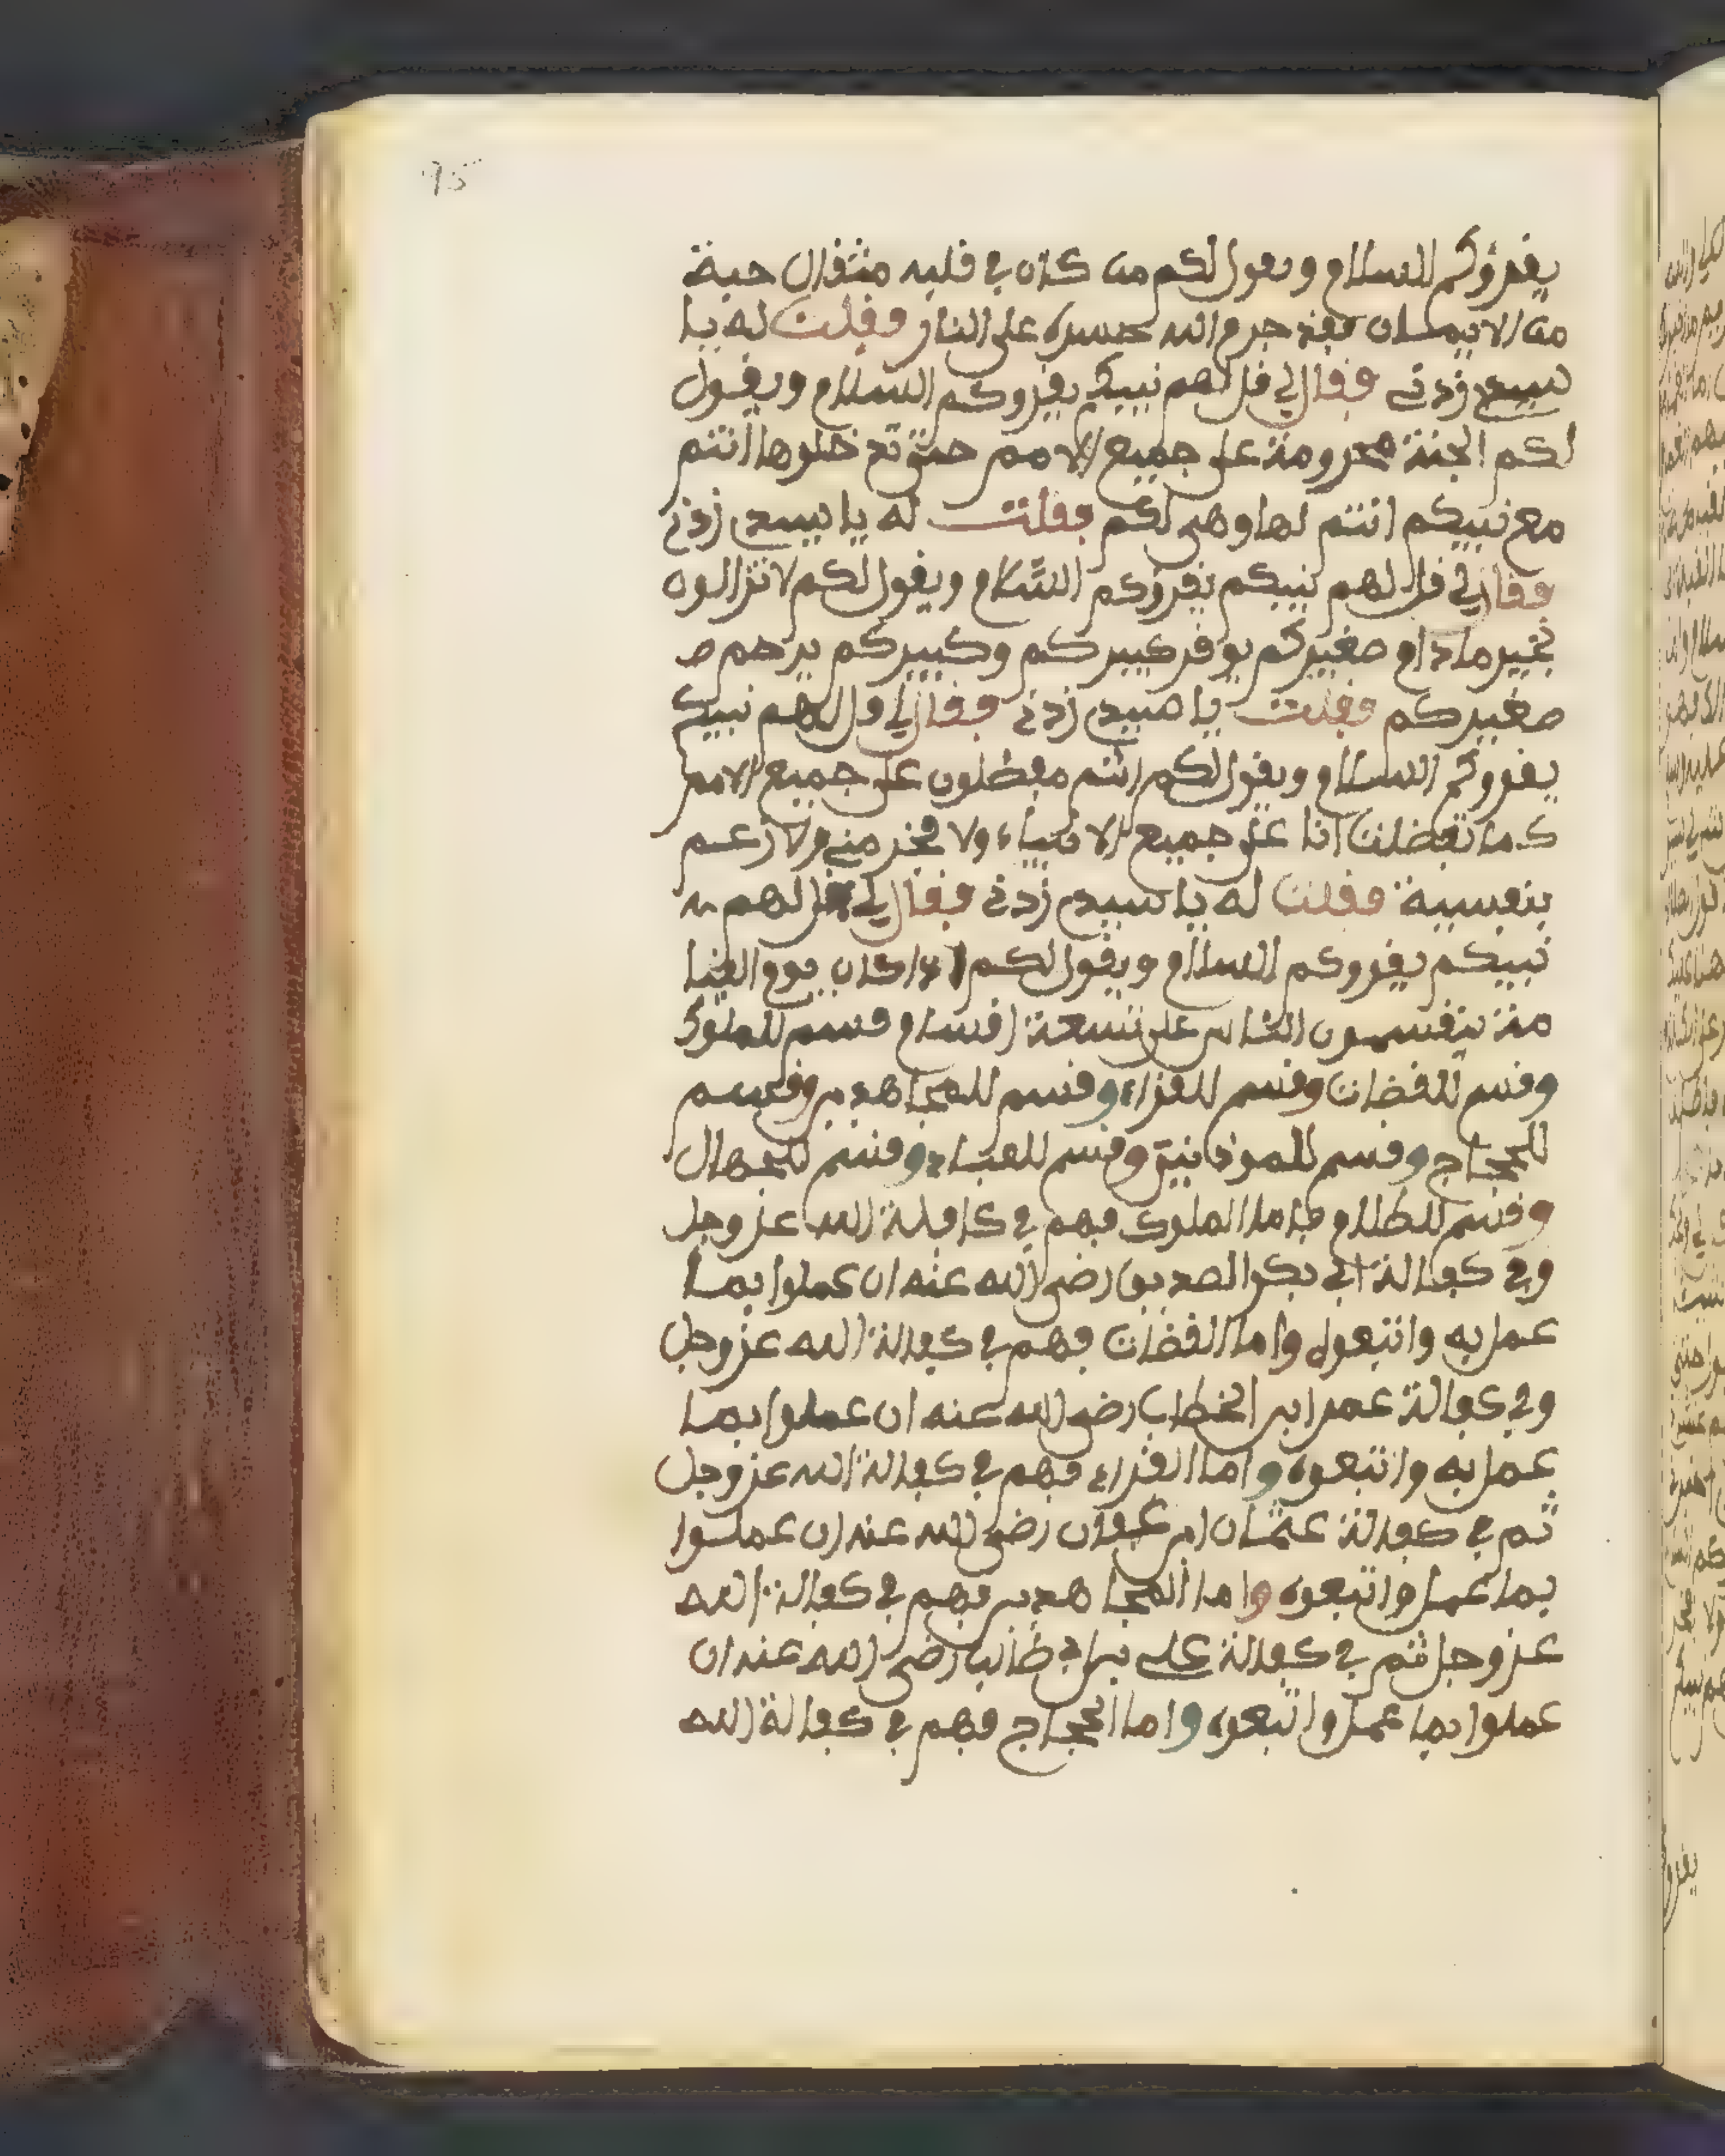 95
يقرؤكم السلام ويقول لكم من كان في قلبه مثقال حبة
من الايمان فقد حرم الله جسده على النار فقلت له يا
سيدي زدني فقال لي قل لهم نبيكم يقروكم السلام ويقول
لكم الجنة محرومة على جميع الامم حتى تدخلوها أنتم
مع نبيكم انتم لها وهى لكم فقلت له يا سيدي زدني
فقال لي قل لهم نبيكم يقرؤكم السّلام ويقول لكم لا تزالون
بخير ما دام صغيركم يوقر كبيركم وكبيركم يرحم ص
صغيركم فقلت يا سيدي زدني فقال لي قل لهم نبيكم
يقروكم السلام ويقول لكم انتم مفضلون على جميع الامم
كما تفضلت انا على جميع الانبياء ولا فخر مني ولا زعم
بنفسية فقلت له يا سيدي زدني فقال لي قل لهم
نبيكم يقروكم السلام ويقول لكم اذا كان يوم القيا
مة يتقسمون الناس على تسعة اقسام قسم للملوك
وقسم للقضات وقسم للقراء وقسم للمجاهدين وقسم
للحجاج وقسم للموذنين وقسم للعباد وقسم للجهال
وقسم للظلام فاما الملوك فهم في كافلة الله عز وجل
وفي كفالة ابي بكر الصديق رضى الله عنه ان عملوا بما
عمل به واتبعوه واما القضات فهم في كفالة الله عز وجل
وفي كفالة عمر ابن الخطاب رضى الله عنه ان عملوا بما
عمل به واتبعوه واما القراء فهم في كفالة الله عز وجل
ثم في كفالة عثمان ابن عفان رضى الله عنه ان عملوا
بما عمل واتبعوه واما المجاهدين فهم في كفالة الله
عز وجل ثم في كفالة على بن ابي طالب رضى الله عنه ان
عملوا بما عمل واتبعوه واما الحجاج فهم في كفالة الله